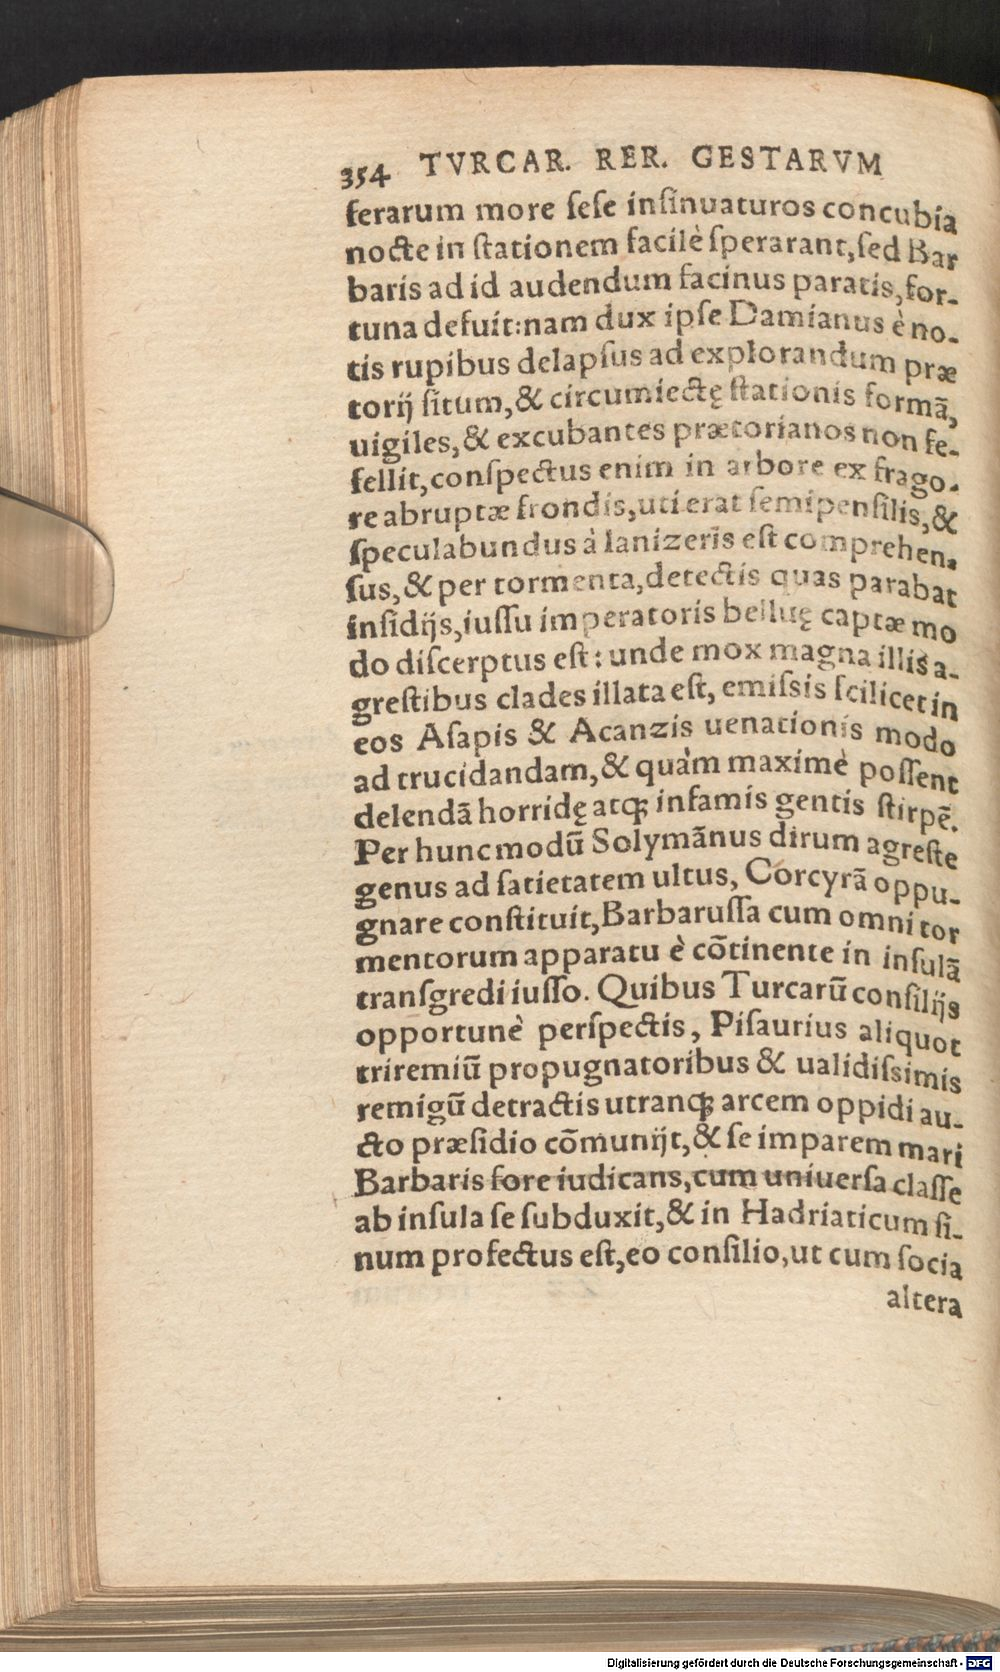 354 TVRCAR. RER. GESTARVM
ferarum more ſeſe inſinuaturos concubia
nocte in ſtationem facilè ſperarant, ſed Bar
baris ad id audendum facinus paratis, for-
tuna defuit: nam dux ipſe Damianus è no-
tis rupibus delapſus ad explorandum præ
torij ſitum, & circumiectę ſtationis formã,
uigiles, & excubantes prætorianos non fe-
fellit, conſpectus enim in arbore ex frago-
re abruptæ frondis, uti erat ſemipenſilis, &
ſpeculabundus à Ianizeris eſt comprehen-
ſus, & per tormenta, detectis quas parabat
inſidijs, iuſſu imperatoris belluę captæ mo
do diſcerptus eſt: unde mox magna illis a-
greſtibus clades illata eſt, emiſsis ſcilicet in
eos Aſapis & Acanzis uenationis modo
ad trucidandam, & quàm maximè poſſent
delendã horridę atq; infamis gentis ſtirpẽ.
Per hunc modũ Solymãnus dirum agreſte
genus ad ſatietatem ultus, Corcyrã oppu-
gnare conſtituit, Barbaruſſa cum omni tor
mentorum apparatu è cõtinente in inſulã
tranſgredi iuſſo. Quibus Turcarũ conſilijs
opportunè perſpectis, Piſaurius aliquot
triremiũ propugnatoribus & ualidiſsimis
remigũ detractis utranq; arcem oppidi au-
cto præſidio cõmunijt, & ſe imparem mari
Barbaris fore iudicans, cum uniuerſa claſſe
ab inſula ſe ſubduxit, & in Hadriaticum ſi-
num profectus eſt, eo conſilio, ut cum ſocia
altera
Digitalisierung gefördert durch die Deutsche Forschungsgemeinschaft - DFG